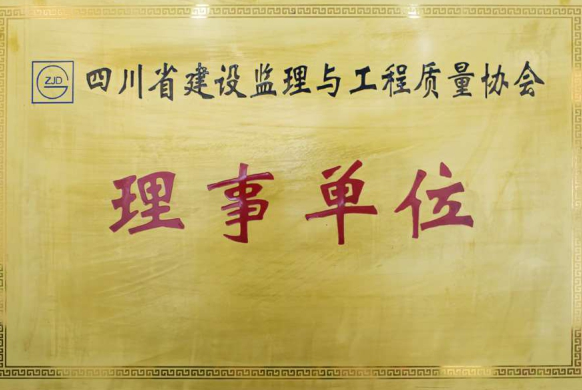 ZJD 四川省建设监理与工程质量协会
理事单位